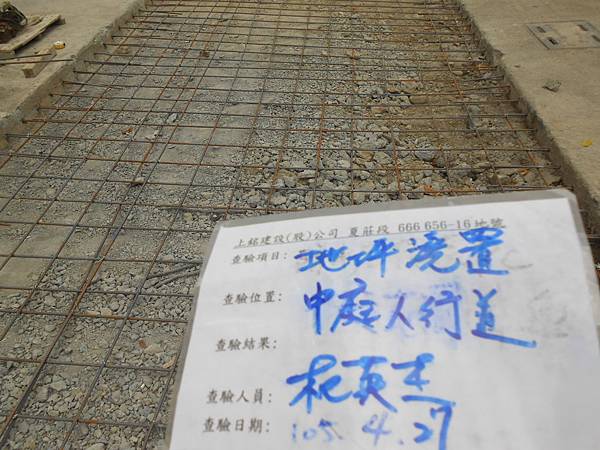 上銘建設(股)公司 夏莊段 666 656-16地號
查驗項目: 地坪澆置
查驗位置: 中庭人行道
查驗結果:
查驗人員: 英杰
查驗日期: 105.4.27